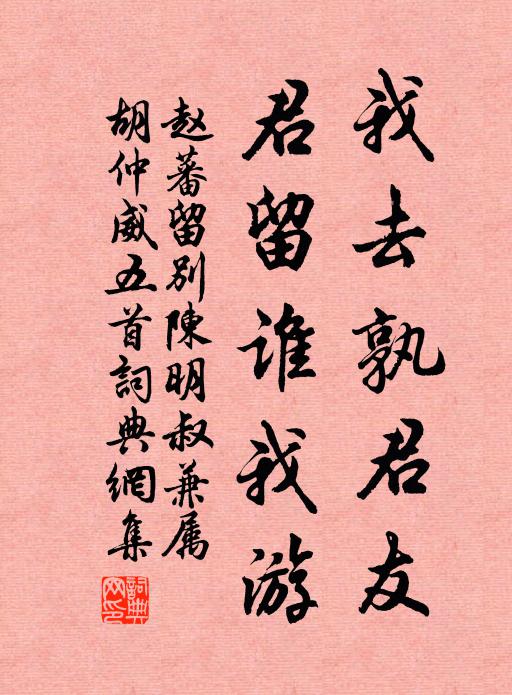 我去孰君友
君留谁我游
赵蕃留别陳明叔兼属
胡仲威五首詞典網集
詞典网印